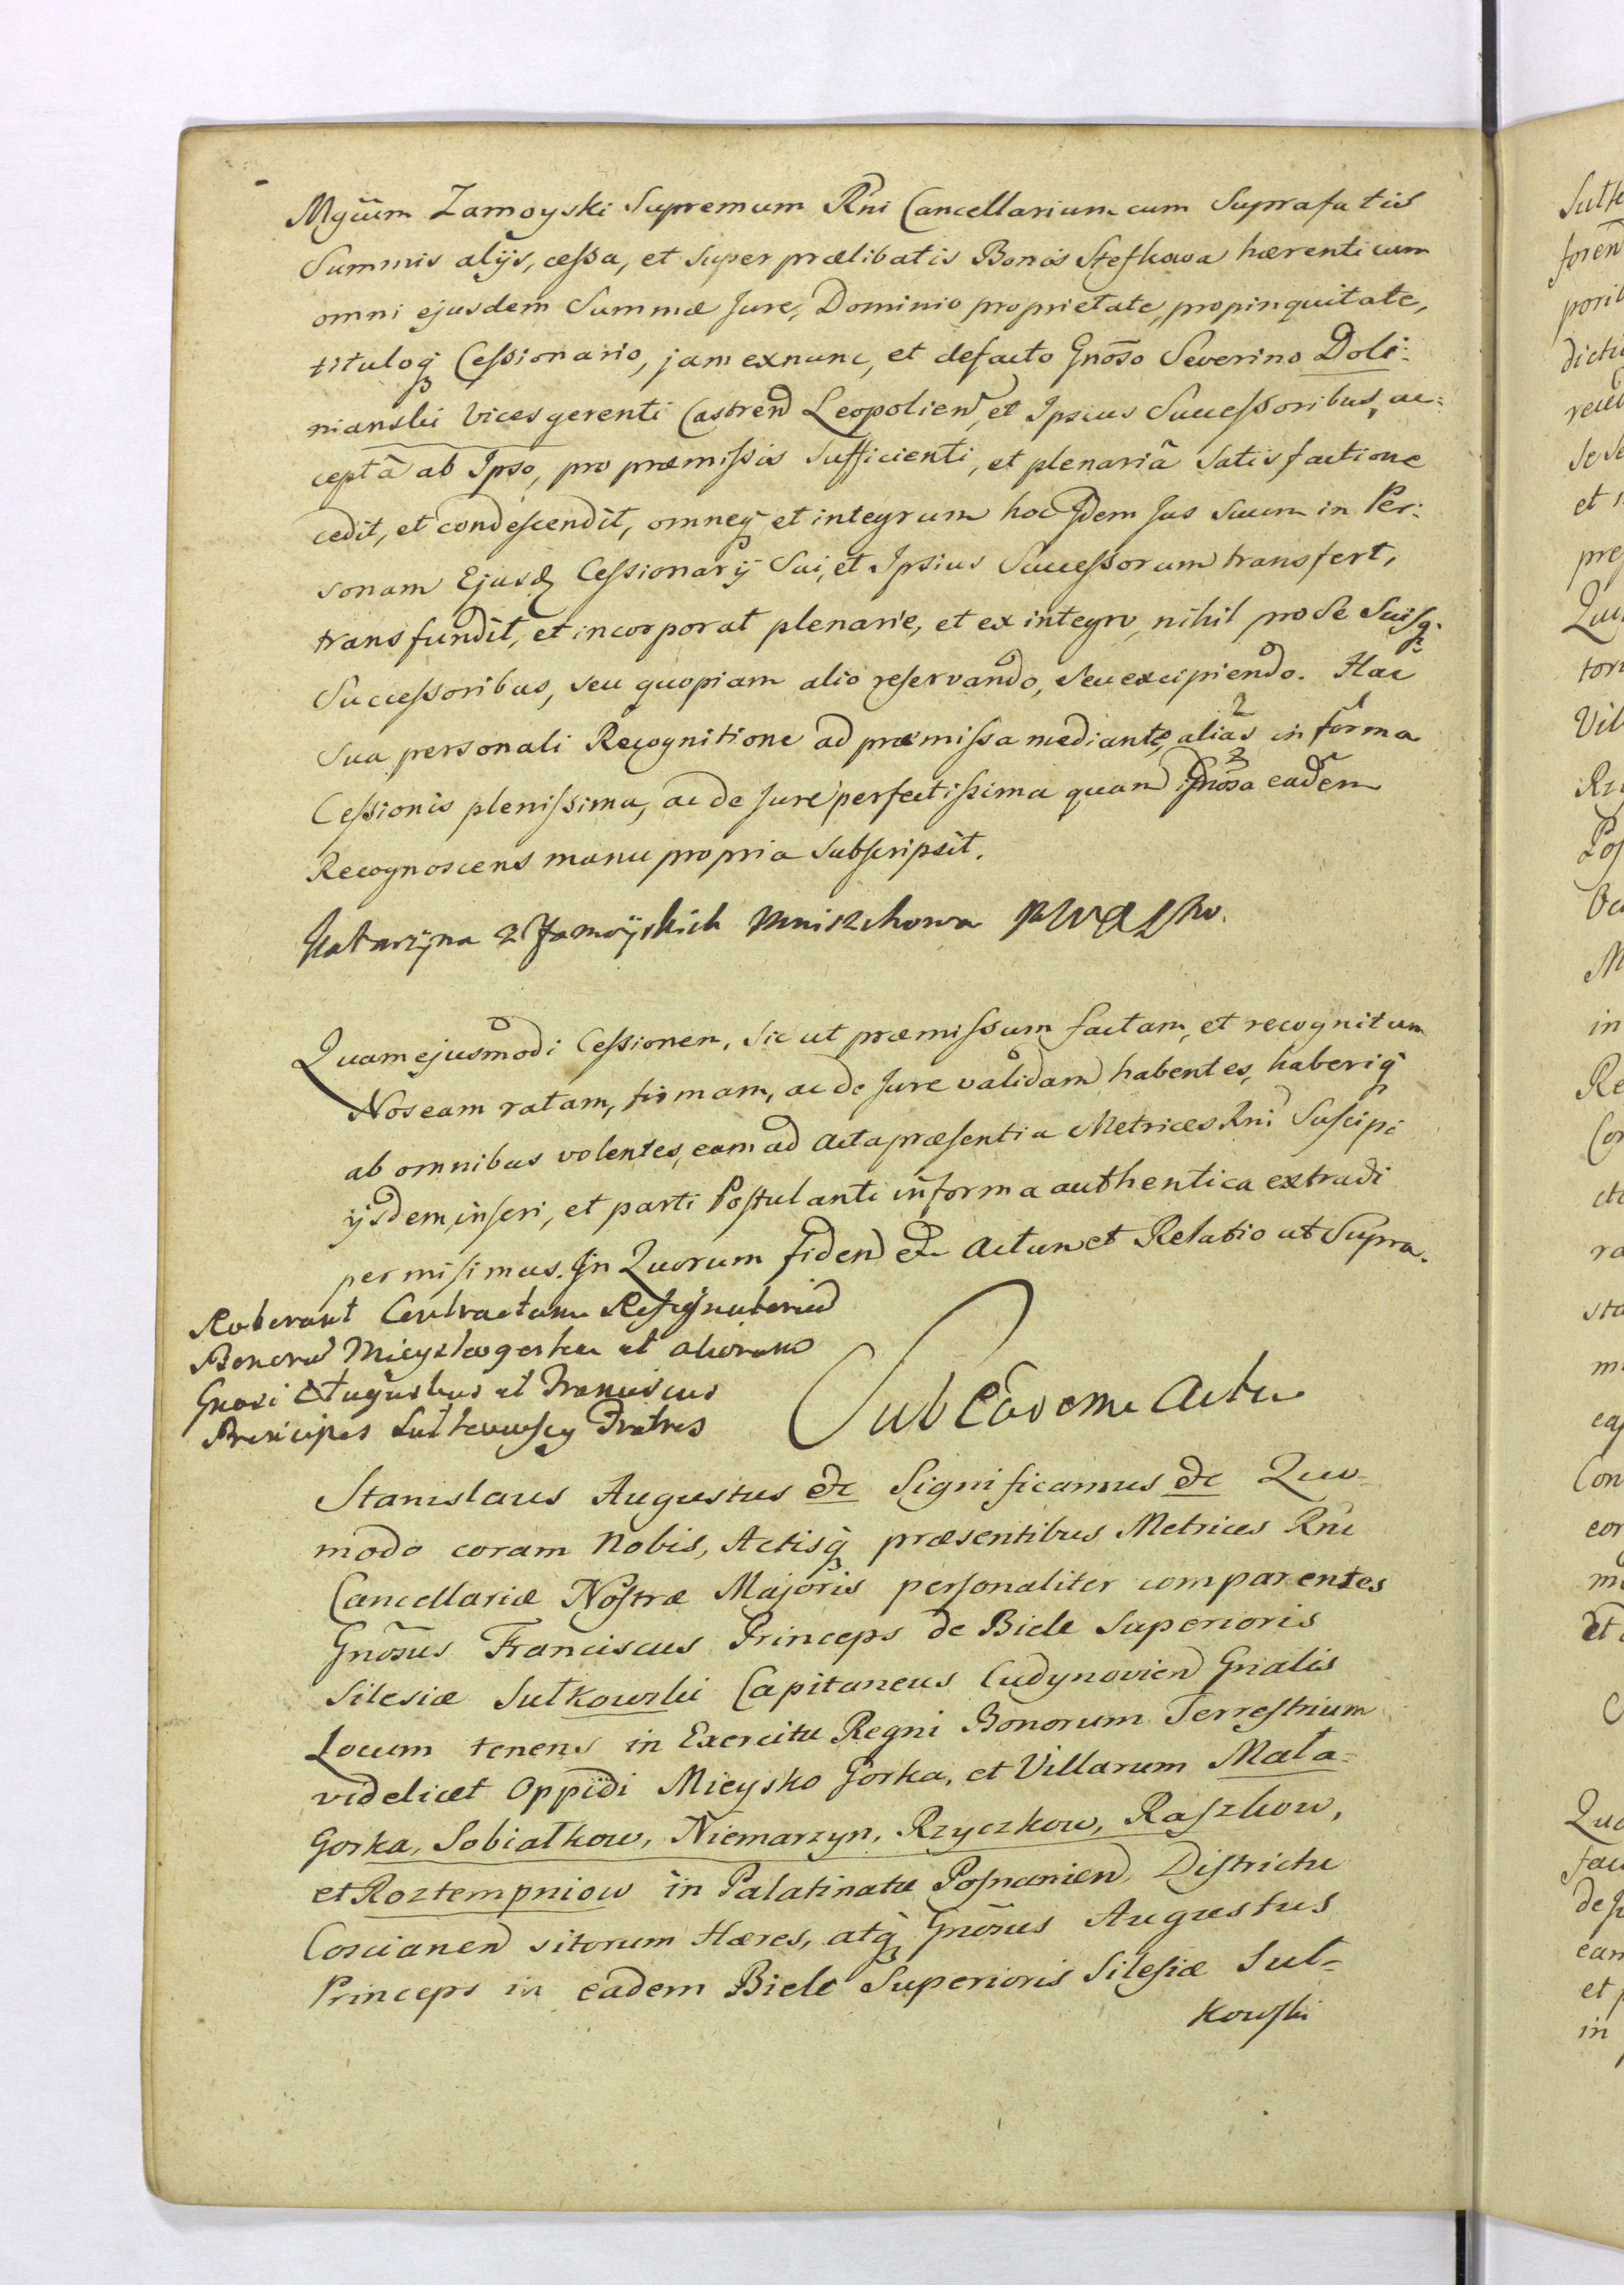 Mgcum Zamoyski Supremum Rni Cancellarium cum Suprafatis
Summis alijs, cessa, et super prælibatis Bonis Stefkowa hærenti cum
omni ejusdem Summæ Jure, Dominio proprietate, propinquitate,
tituloq Cessionario, jam exnunc, et defacto Gnoso Severino Doli-
nianski Vices gerenti Castren Leopolien, et Ipsius Successoribus, ac-
ceptâ ab Ipso, pro præmissis sufficienti, et plenariâ Satisfactione
cedit, et condescendit, omneq et integrum hoc Idem Jus Suum in Per-
sonam Ejusd Cessionarij Sui, et Ipsius Successorum transfert,
transfundit, et incorporat plenarie, et ex integro, nihil pro Se Suisq
Successoribus, seu quopiam alio reservando, seu excipiendo. Hac
Sua personali Recognitione ad præmissa mediante, alias in forma
Cessionis plenissima, ac de Jure perfectissima quam Gnosa eadem
Recognoscens manu propria Subscripsit.
Katarzyna z Zamoyskich Mniszchowa
Quam ejusmodi Cessionem, sic ut præmissum factam, et recognitam
Nos eam ratam, firmam, ac de Jure validam habentes, haberiq
ab omnibus volentes, eam ad Acta præsentia Metrices Rni Suscipi
ijsdem inseri, et parti Postulanti in forma authentica extradi
permisimus. In Quorum fidem &c Actum et Relatio ut Supra.
Roborant Contractum Resignatorium
Bonorum Mieyskogorka et aliorum
Gnosi Augustus et Franciscus
Principes Sułkowscy Fratres
Sub Eodem Actu
Stanislaus Augustus &c Significamus &c Quo-
modo coram Nobis, Actisq præsentibus Metrices Rni
Cancellariæ Nostræ Majoris personaliter comparentes
Gnosus Franciscus Princeps de Biele Superioris
Silesiæ Sułkowski Capitaneus Cudynovien Gnalis
Locum tenens in Exercitu Regni Bonorum Terrestrium
videlicet Oppidi Mieysko Gorka, et Villarum Mała-
Gorka, Sobiałkow, Niemarzyn, Rzyczkow, Raszkow,
et Roztempniow in Palatinatu Posnanien Districtu
Coscianen sitorum Hæres, atq Gnosus Augustus
Princeps in eadem Biele Superioris Silesiæ Suł-
kowski